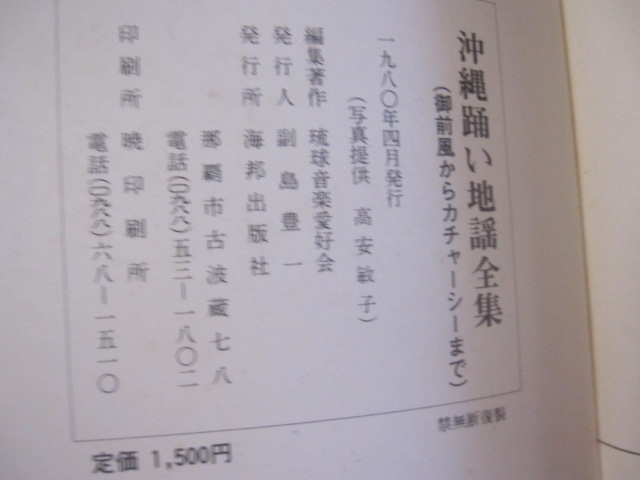 沖縄踊い地謡全集
(御前風からカチャーシーまで)
一九八〇年四月発行
(写真提供 高安敏子)
編集著作 琉球音楽愛好会
発行人 副島豊一
発行所 海邦出版社
那覇市古波蔵七八
電話(〇九八八)五三―一八〇二
印刷所 暁印刷所
電話(〇九八八)六八―一五一〇
禁無断復製
定価 1,500円